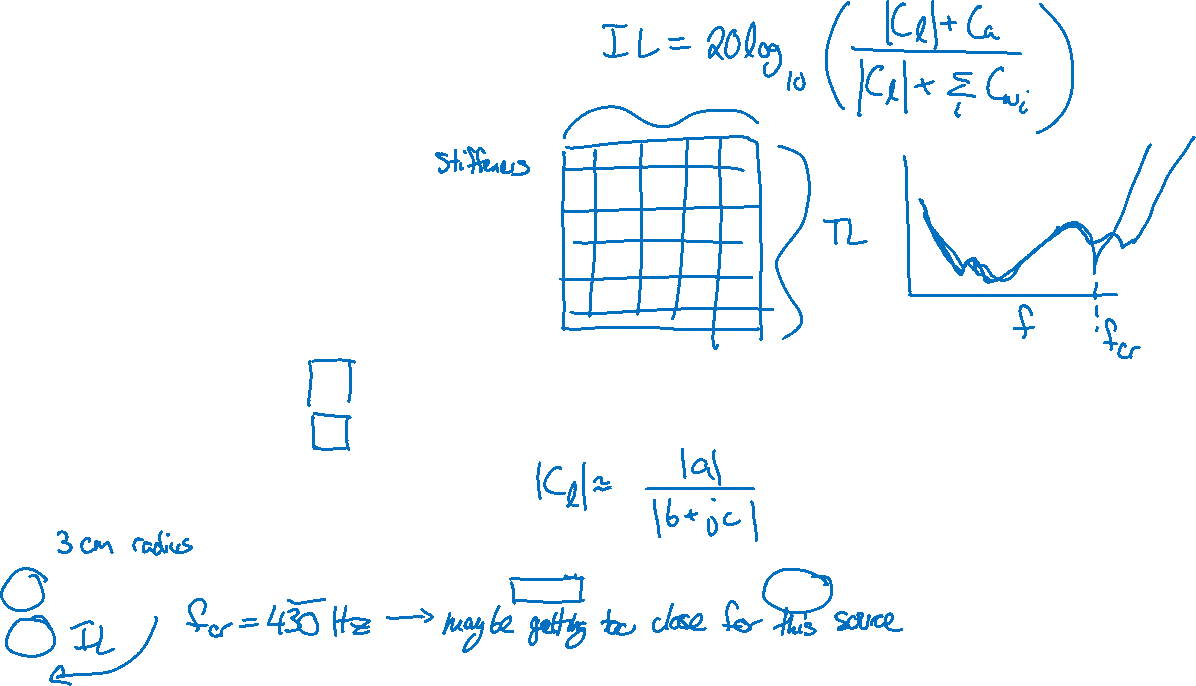 IL = 20log₁₀ ( |Cₗ| + Cₐ / |Cₗ| + Σᵢ C_wᵢ )
Stiffeners
TL
f
f_cr
|Cₗ| ≈ |a| / |b + jc|
3 cm radius
IL
f_cr = 430 Hz → maybe getting too close for this source